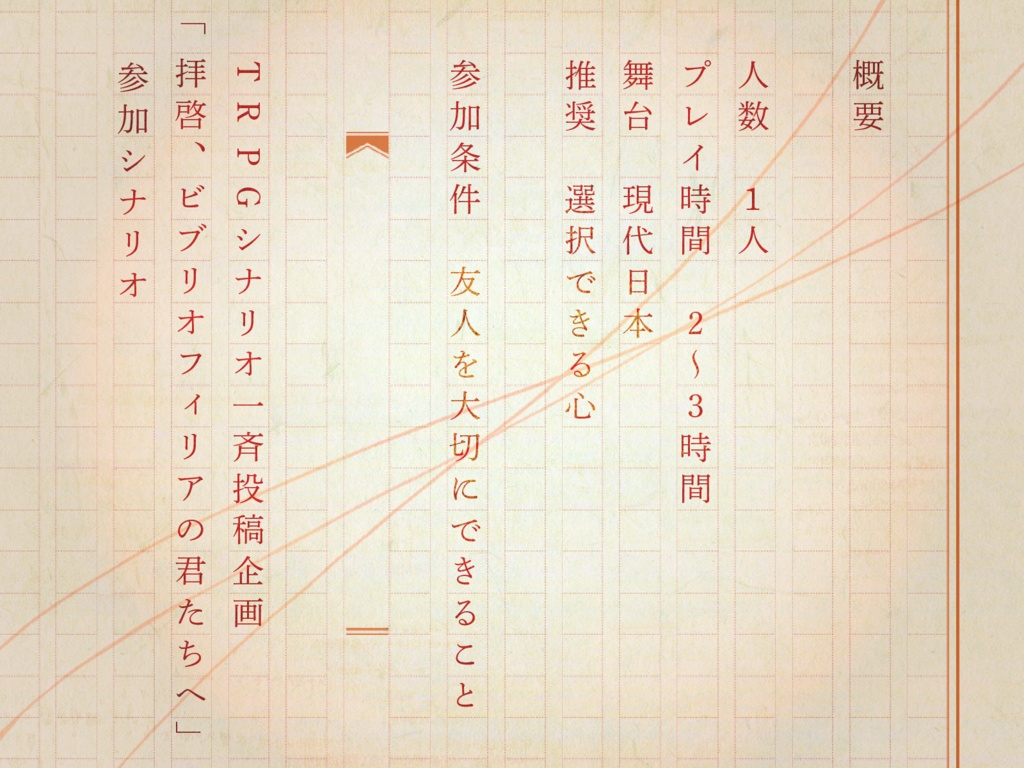 概要
人数　１人
プレイ時間　２～３時間
舞台　現代日本
推奨　選択できる心
参加条件　友人を大切にできること
ＴＲＰＧシナリオ一斉投稿企画
「拝啓、ビブリオフィリアの君たちへ」
参加シナリオ